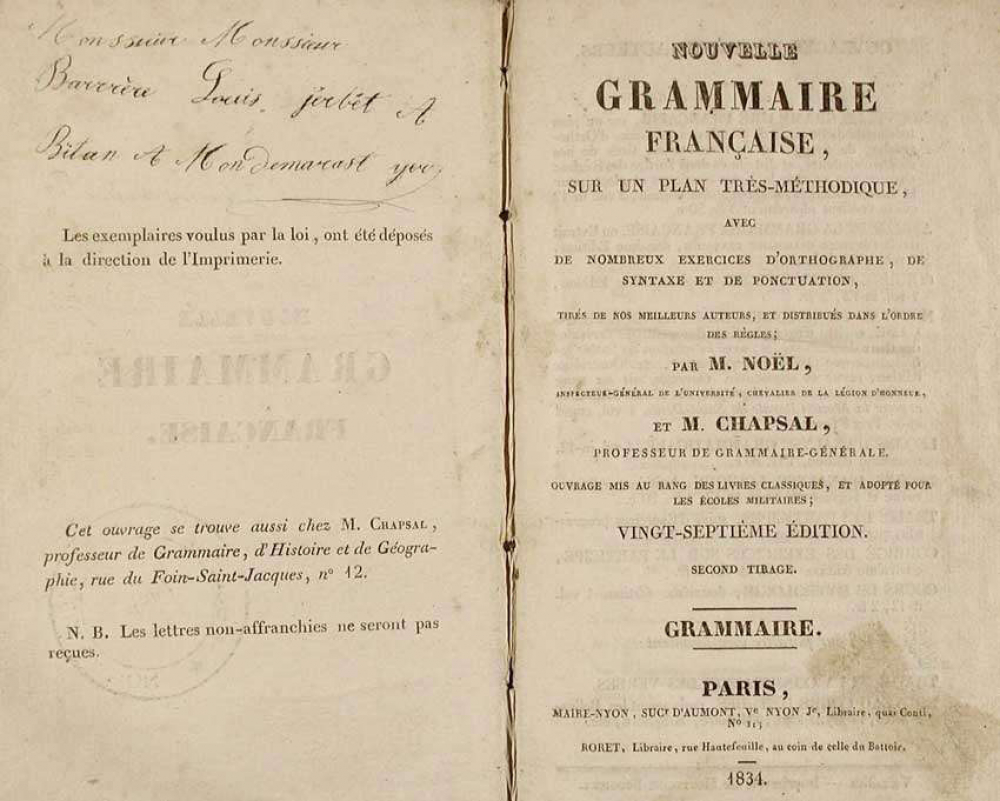 Monssuire Monssieur
Barrère Louis, jerbèt A
Bilan A Mondemarast
Les exemplaires voulus par la loi, ont été déposés
à la direction de l'Imprimerie.
Cet ouvrage se trouve aussi chez M. CHAPSAL,
professeur de Grammaire, d'Histoire et de Géogra-
phie, rue du Foin-Saint-Jacques, n° 12.
N. B. Les lettres non-affranchies ne seront pas
reçues.
NOUVELLE
GRAMMAIRE
FRANÇAISE,
SUR UN PLAN TRÈS-MÉTHODIQUE,
AVEC
DE NOMBREUX EXERCICES D'ORTHOGRAPHE, DE
SYNTAXE ET DE PONCTUATION,
TIRÉS DE NOS MEILLEURS AUTEURS, ET DISTRIBUÉS DANS L'ORDRE
DES RÈGLES;
PAR M. NOËL,
INSPECTEUR-GÉNÉRAL DE L'UNIVERSITÉ, CHEVALIER DE LA LÉGION D'HONNEUR,
ET M. CHAPSAL,
PROFESSEUR DE GRAMMAIRE-GÉNÉRALE.
OUVRAGE MIS AU RANG DES LIVRES CLASSIQUES, ET ADOPTÉ POUR
LES ÉCOLES MILITAIRES;
VINGT-SEPTIÈME ÉDITION.
SECOND TIRAGE.
GRAMMAIRE.
PARIS,
MAIRE-NYON, SUCr D'AUMONT, Ve NYON Je, Libraire, quai Conti,
N°
RORET, Libraire, rue Hautefeuille, au coin de celle du Battoir.
1834.